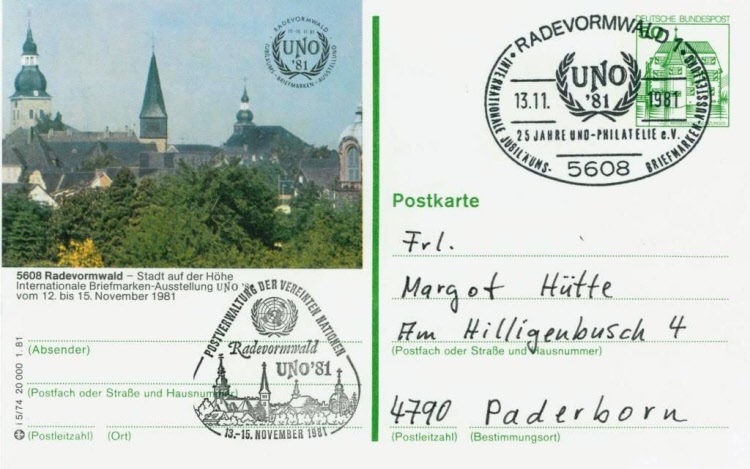 RADEVORMWALD
JUBILÄUMS-BRIEFMARKEN-AUSSTELLUNG
UNO
'81
5608 Radevormwald – Stadt auf der Höhe
Internationale Briefmarken-Ausstellung UNO '81
vom 12. bis 15. November 1981
POSTVERWALTUNG DER VEREINTEN NATIONEN
Radevormwald
UNO'81
13.-15. NOVEMBER 1981
(Absender)
(Postfach oder Straße und Hausnummer)
(Postleitzahl) (Ort)
I 5/74 20 000 1.81
DEUTSCHE BUNDESPOST
RADEVORMWALD 1
UNO
'81
13.11. 1981
25 JAHRE UNO-PHILATELIE e.V.
INTERNATIONALE JUBILÄUMS- BRIEFMARKEN-AUSSTELLUNG
5608
Postkarte
Frl.
Margot Hütte
Am Hilligenbusch 4
(Postfach oder Straße und Hausnummer)
4790 Paderborn
(Postleitzahl) (Bestimmungsort)